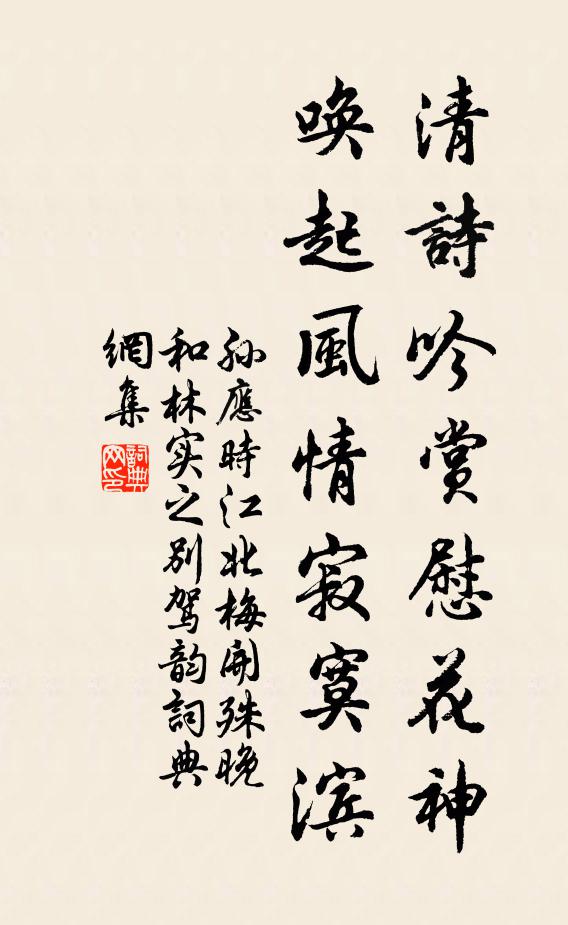 清詩吟賞慰花神
喚起風情寂寞濱
孫應時江北梅開殊晚
和林实之别駕韵詞典
網集
詞典網印